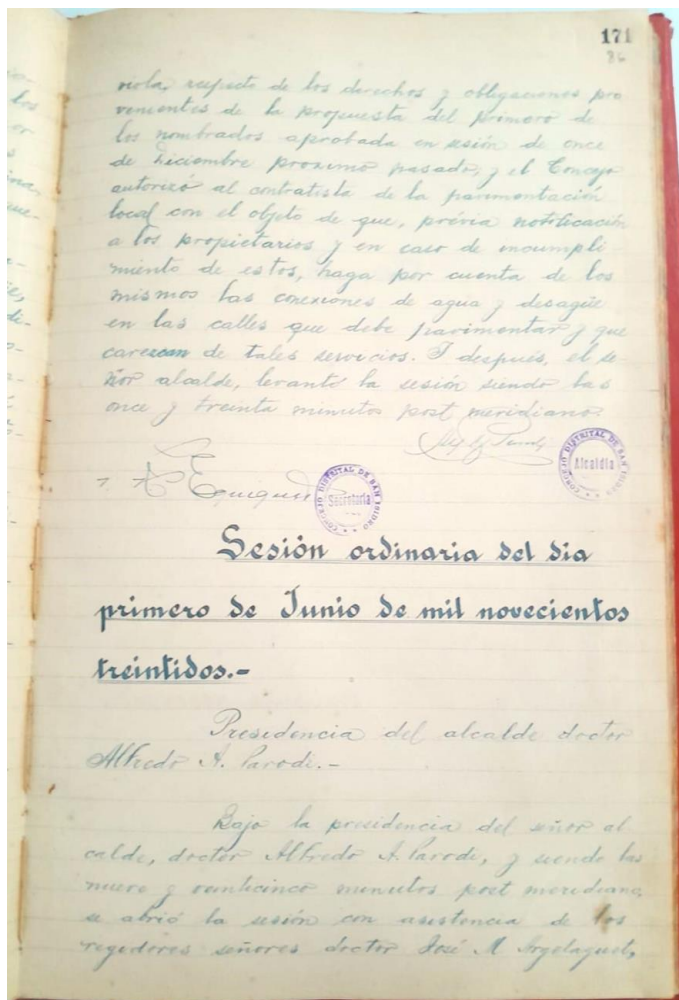 171
86
viola, respecto de los derechos y obligaciones pro
venientes de la propuesta del primero de
los nombrados aprobada en sesión de once
de Diciembre proximo pasado; y el Concejo
autorizó al contratista de la pavimentación
local con el objeto de que, prévia notificación
a los propietarios y en caso de incumpli
miento de estos, haga por cuenta de los
mismos las conexiones de agua y desagüe
en las calles que debe pavimentar y que
carezcan de tales servicios. I después, el se
ñor alcalde, levantó la sesión siendo las
once y treinta minutos post meridiano.
CONCEJO DISTRITAL DE SAN ISIDRO
Alcaldia
CONCEJO DISTRITAL DE SAN ISIDRO
Secretaria
Sesión ordinaria del dia
primero de Junio de mil novecientos
treintidos.-
Presidencia del alcalde doctor
Alfredo A. Parodi.-
Bajo la presidencia del señor al
calde, doctor Alfredo A. Parodi, y siendo las
nueve y veinticinco minutos post meridiano,
se abrió la sesión con asistencia de los
regidores señores doctor José M